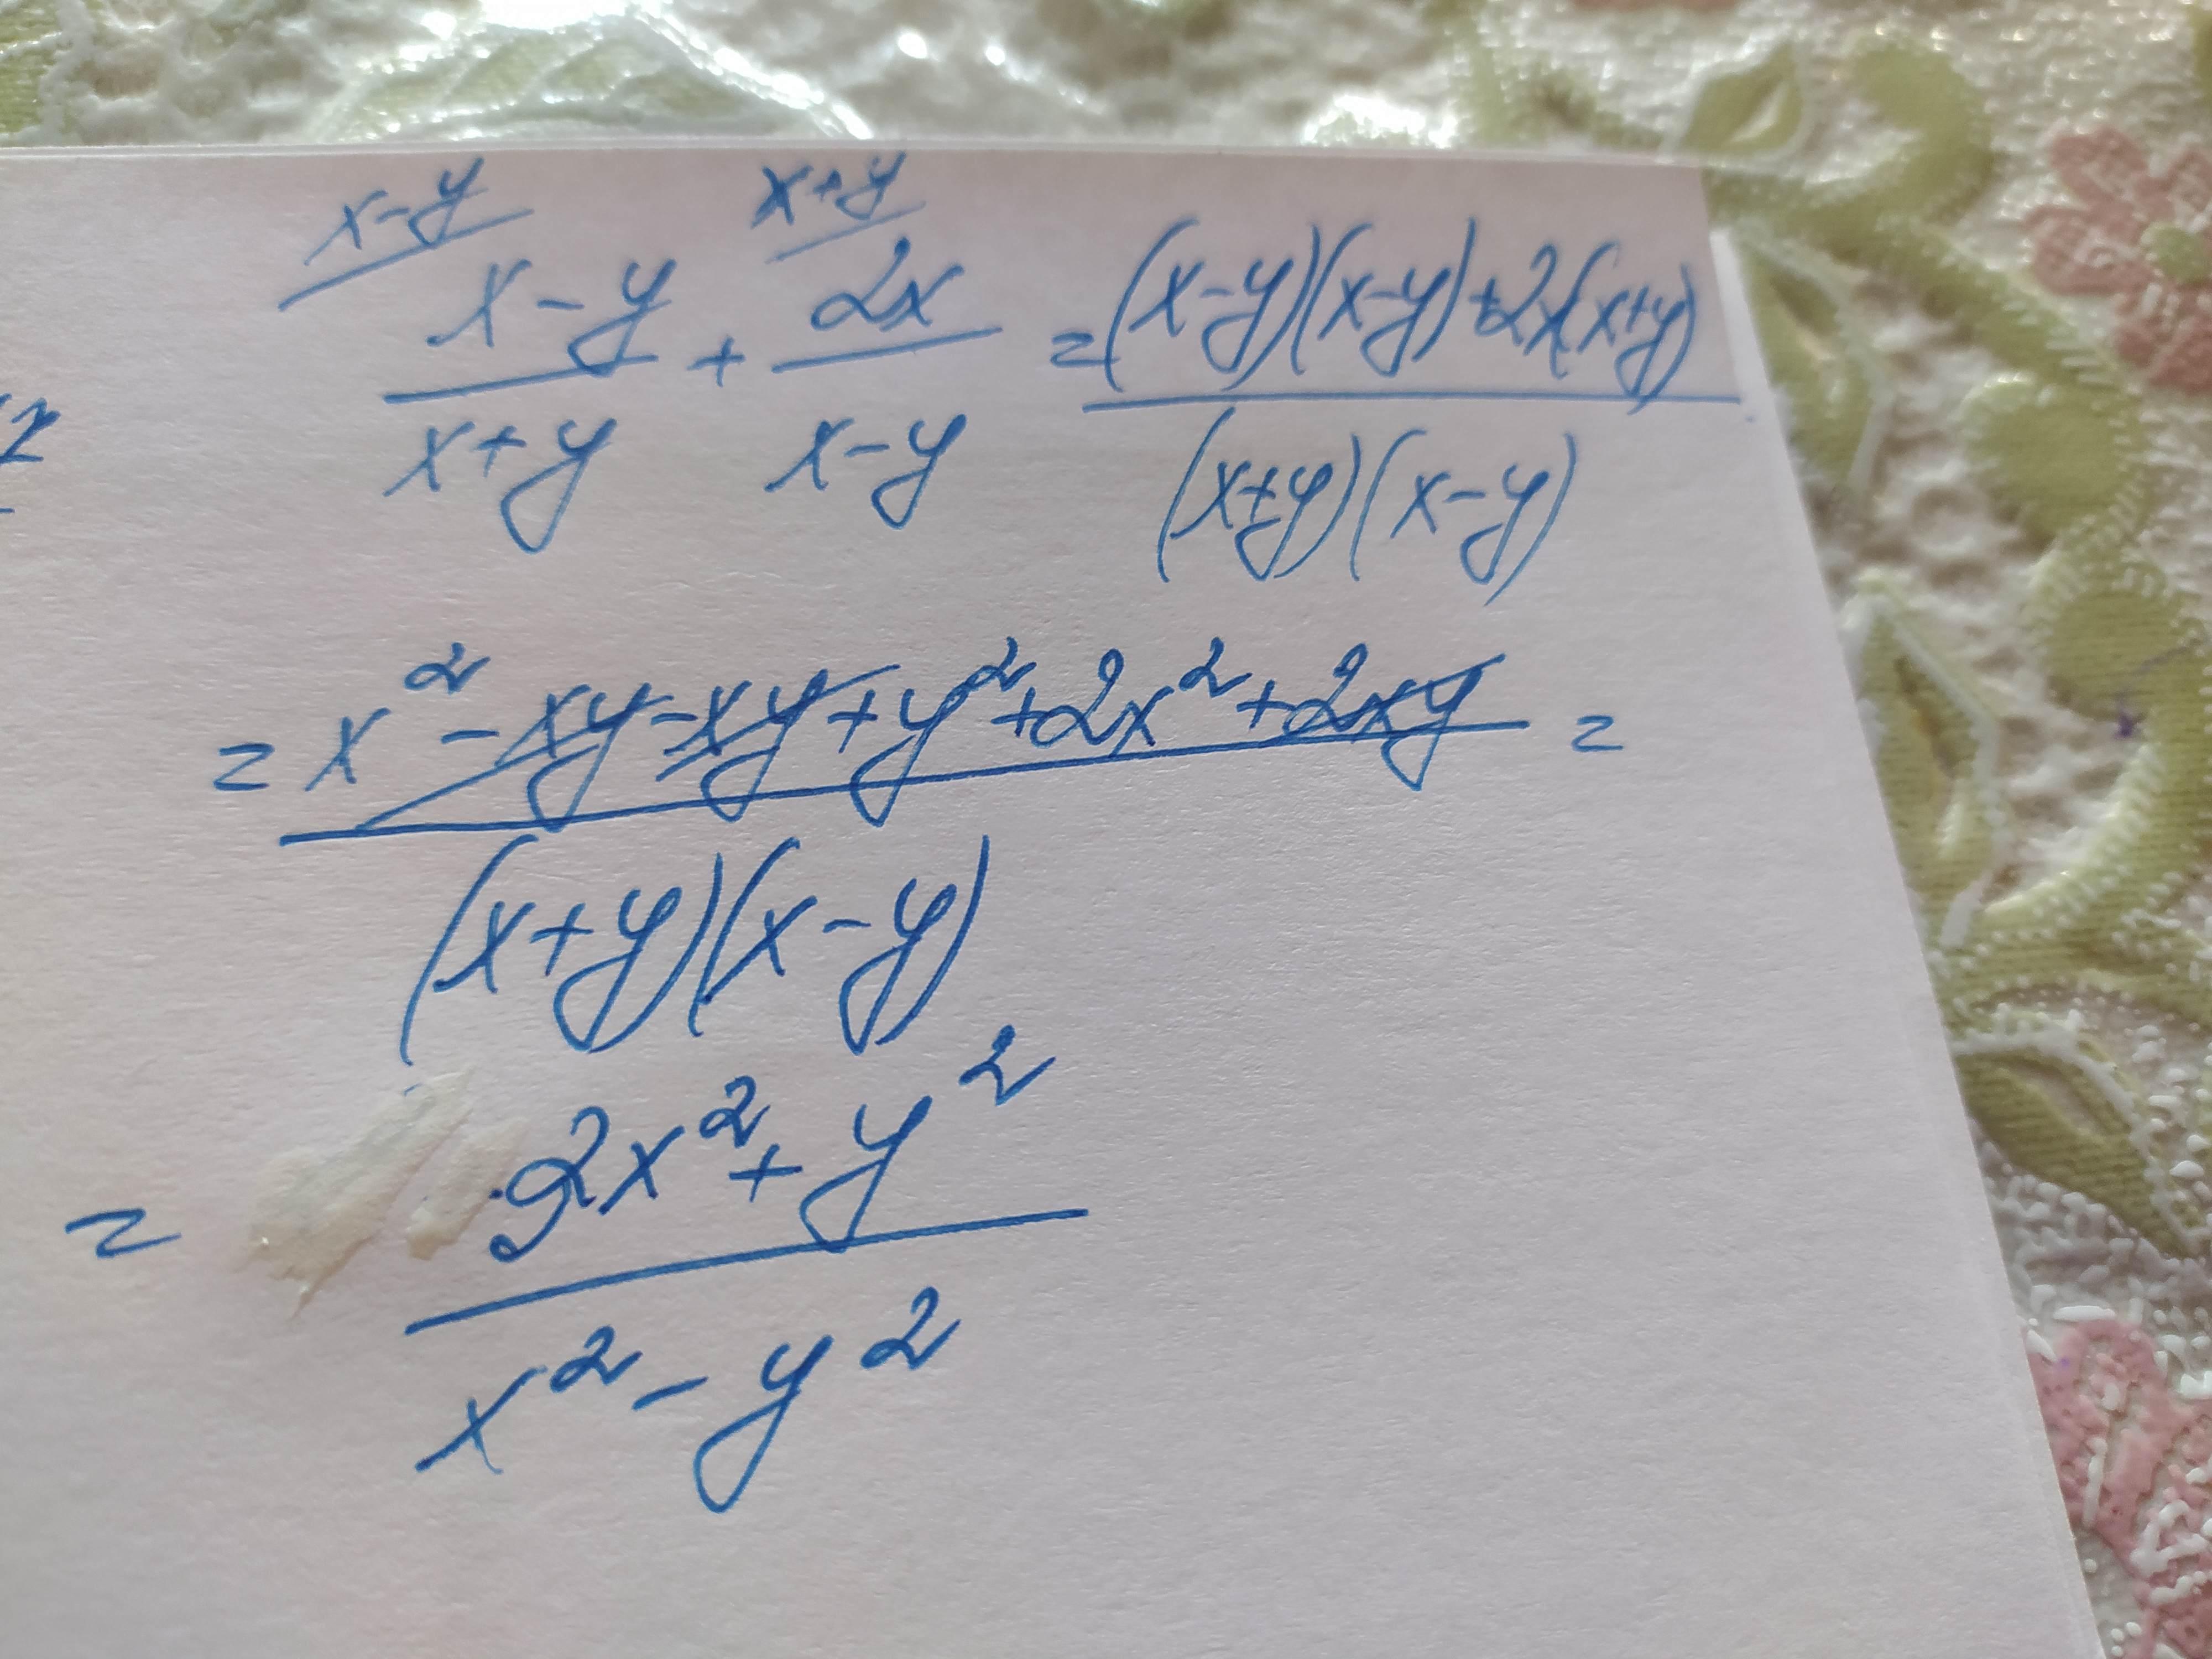 x-y x+y
x-y/x+y + 2x/x-y = (x-y)(x-y)+2x(x+y)/(x+y)(x-y)
= x²-xy-xy+y²+2x²+2xy/(x+y)(x-y) =
= 2x²+y²/x²-y²